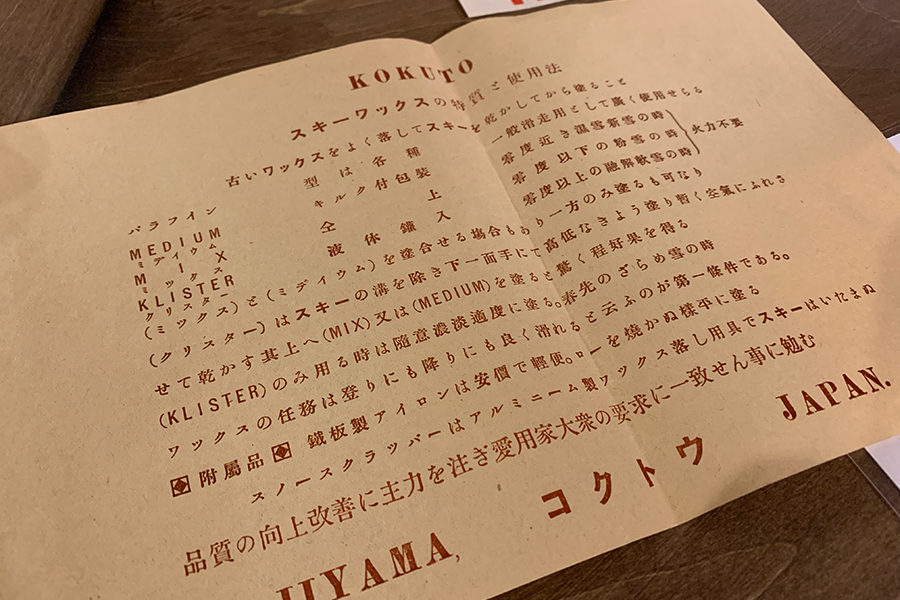 KOKUTO
スキーワックスの特質と使用法
古いワックスをよく落してスキーを乾かしてから塗ること
パラフイン 型は各種 一般滑走用として廣く使用せらる
MEDIUM キルク付包装 零度近き濕雪新雪の時
ミディウム
MIX 仝上 零度以下の粉雪の時 火力不要
ミックス
KLISTER 液体鑵入 零度以上の融解軟雪の時
クリスター
(ミックス)と(ミデイウム)を塗合せる塲合もあり一方のみ塗るも可なり
(クリスター)はスキーの溝を除き下一面手にて高低なきよう塗り暫く空氣にふれさ
せて乾かす其上へ(MIX)又は(MEDIUM)を塗ると驚く程好果を得る
(KLISTER)のみ用る時は隨意濃淡適度に塗る。春先のざらめ雪の時
ワックスの任務は登りにも降りにも良く滑れると云ふのが第一條件である。
附屬品 鐵板製アイロンは安價で輕便。ローを燒かぬ樣平に塗る
スノースクラッパーはアルミニーム製ワックス落し用具でスキーはいたまぬ
品質の向上改善に主力を注ぎ愛用家大衆の要求に一致せん事に勉む
コクトウ
IIYAMA, JAPAN.